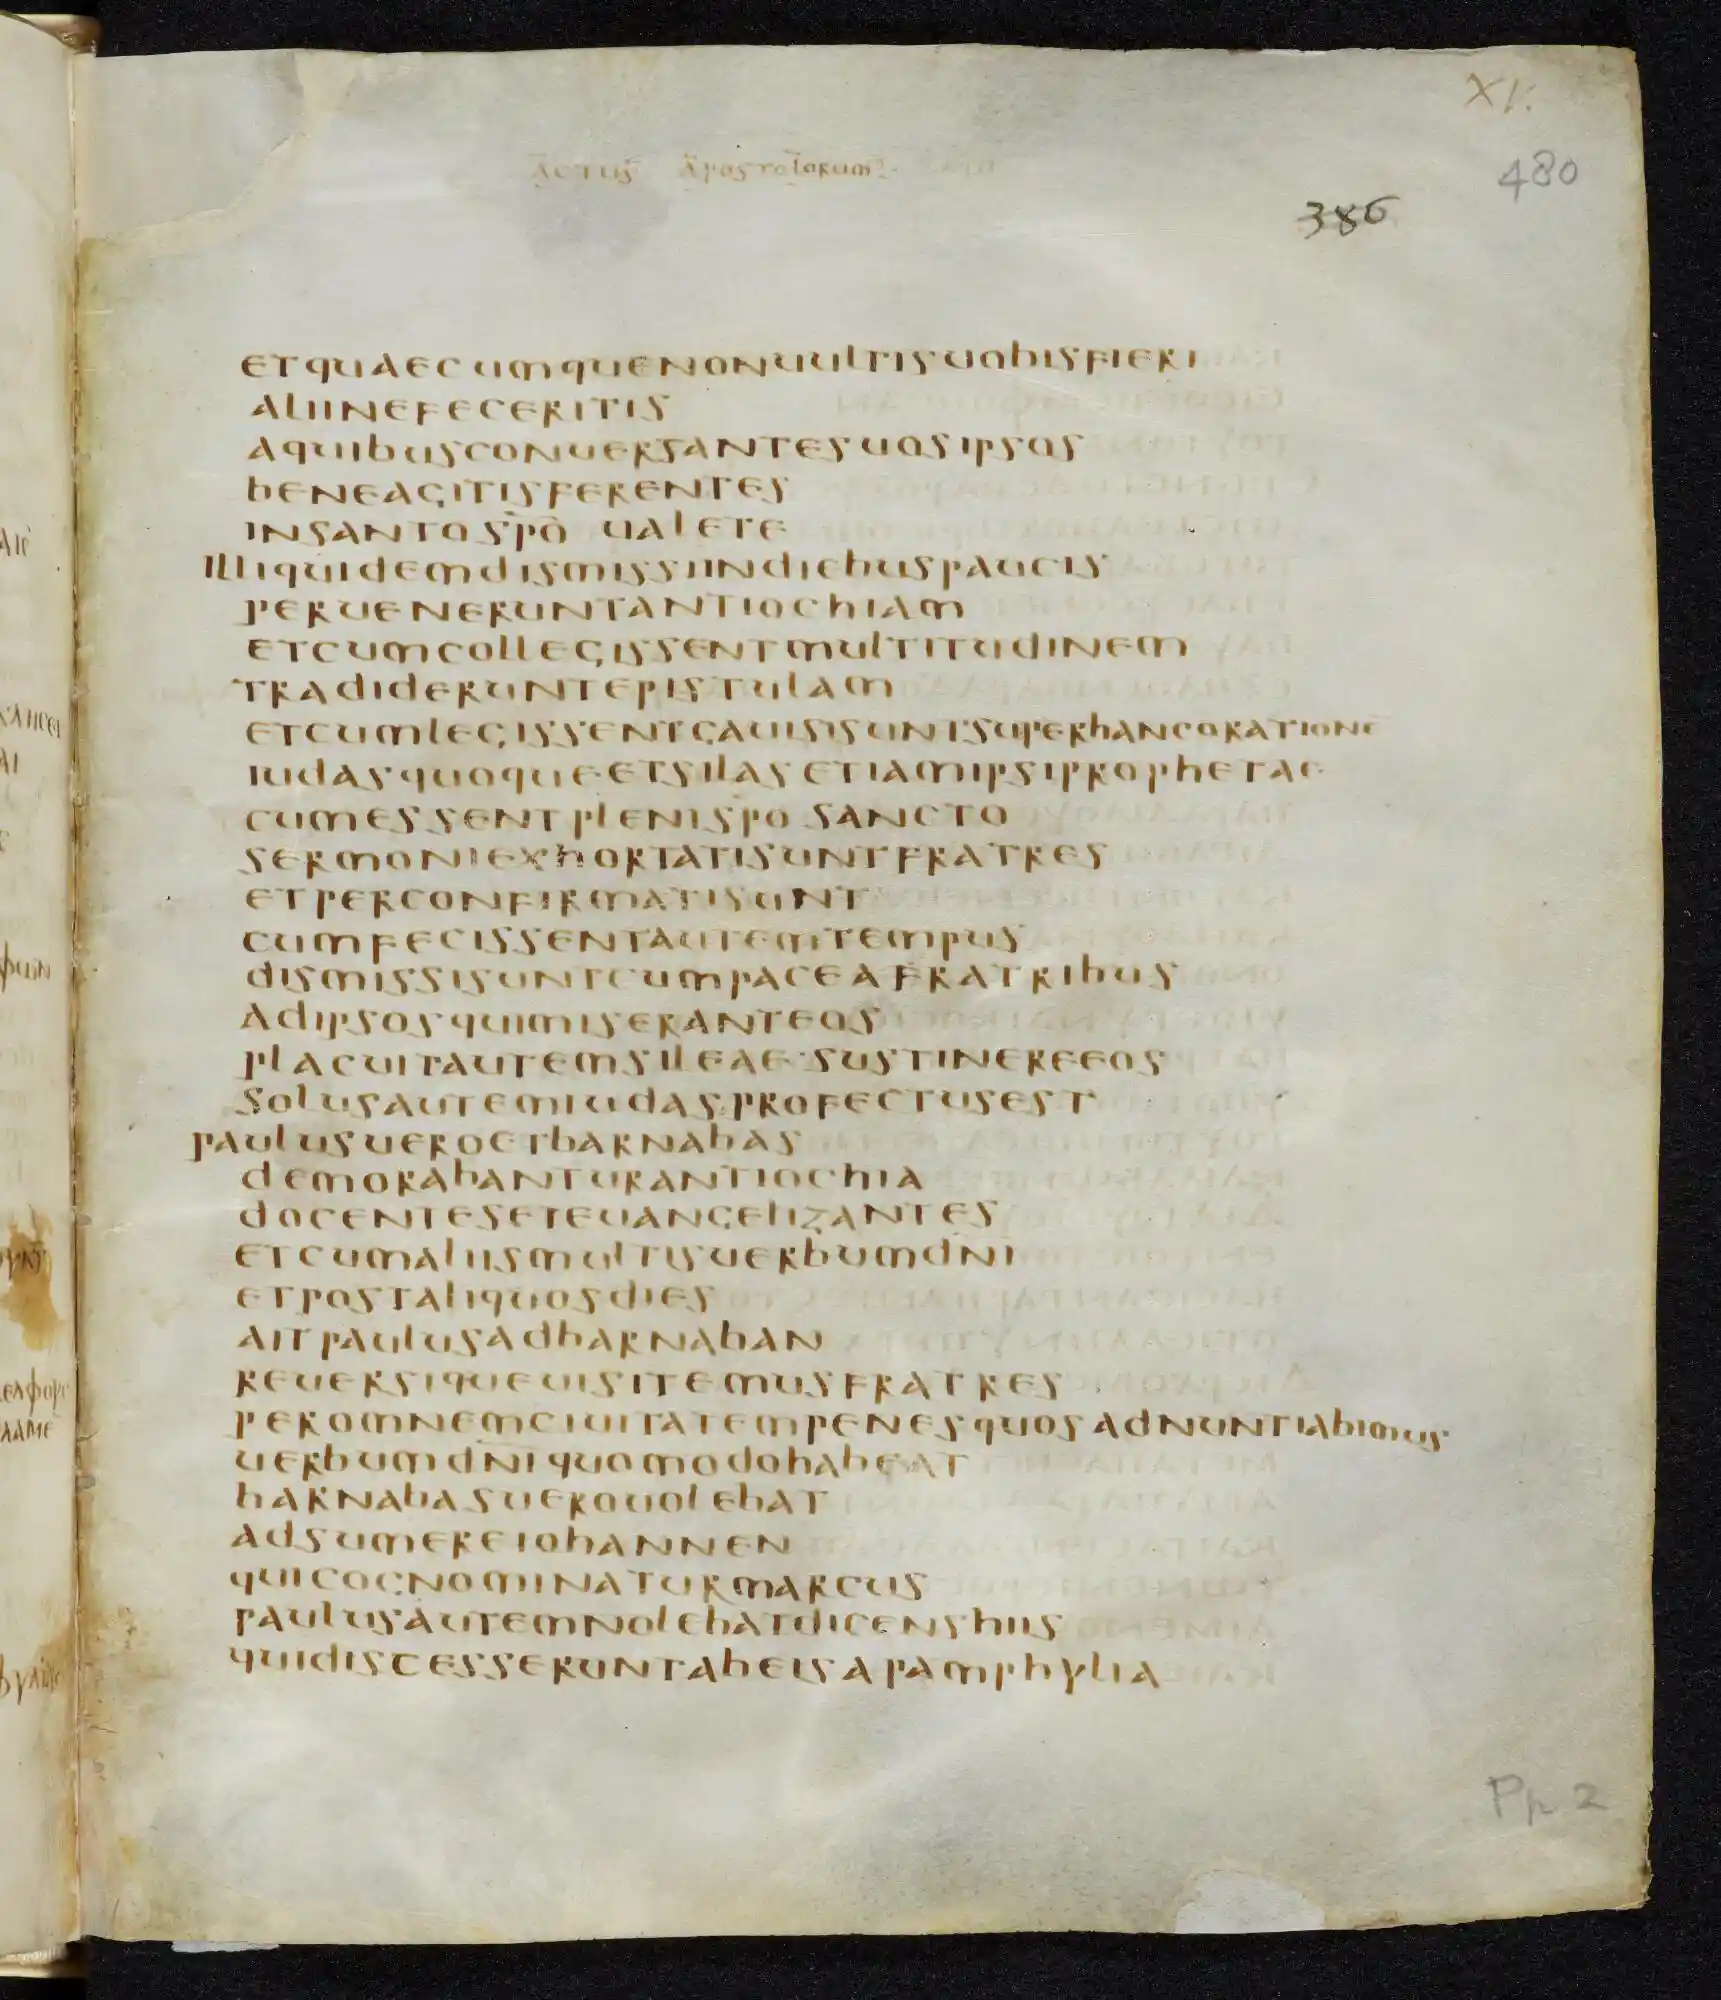 XI.
actus apostolorum
480
386
etquaecumquenonuultisuobisfieri
aliinefeceritis
aquibusconuersantesuosipsos
beneagitisferentes
insantospō ualete
illiquidemdismissiindiebuspaucis
perueneruntantiochiam
etcumcollegissentmultitudinem
tradideruntepistulam
etcumlegissentgauisisuntsuperhancorationē
iudasquoqueetsilasetiamipsiprophetae
cumessentplenispō sancto
sermoniexhortatisuntfratres
etperconfirmatisunt
cumfecissentautemtempus
dismissisuntcumpaceafratribus
adipsosquimiseranteos
placuitautemsileae·sustinereeos
solusautemiudasprofectusest
paulusueroetbarnabas
demorabanturantiochia
docentesetevangelizantes
etcumaliismultisuerbumdni
etpostaliquosdies
aitpaulusadbarnaban
reuersiqueuisitemusfratres
peromnemciuitatempenesquosadnuntiabimus
uerbumdn̄iquomodohabeat
barnabasuerouolebat
adsumereiohannen
quicognominaturmarcus
paulusautemnolebatdicenshiis
quidiscesseruntabeisapamphylia
Pp 2